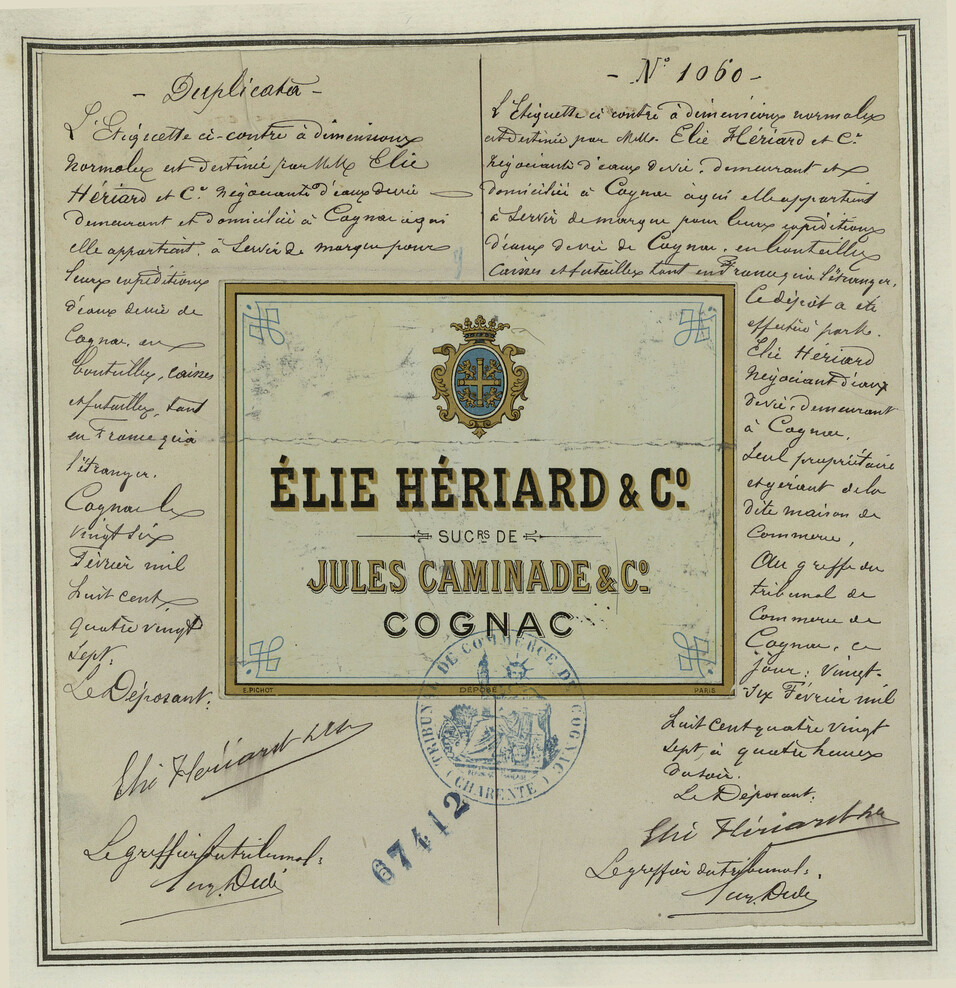 - Duplicata -
L'Etiquette ci-contre à dimensions
normales est destinée par MM Elie
Hériard et Cie Négociants d'eaux de vie
demeurant et domiciliés à Cognac à qui
elle appartient, à servir de marque pour
leurs expéditions
d'eaux de vie de
Cognac, en
bouteilles, caisses
et futailles, tant
en France qu'à
l'étranger.
Cognac le
vingt six
Février mil
huit cent
quatre vingt
sept.
Le Déposant:
Elie Hériard
Le greffier du tribunal:
- N° 1060 -
L'Etiquette ci contre à dimensions normales
est destinée par MMrs. Elie Hériard et Cie
Négociants d'eaux de vie, demeurant et
domiciliés à Cognac à qui elle appartient
à servir de marque pour leurs expéditions
d'eaux de vie de Cognac, en bouteilles
caisses et futailles tant en France qu'à l'étranger.
Ce dépôt a été
effectué par Mr.
Elie Hériard
Négociant d'eaux
de vie, demeurant
à Cognac,
seul propriétaire
et gérant de la
dite maison de
Commerce,
Au greffe du
tribunal de
Commerce de
Cognac, ce
jour, vingt-
six Février mil
huit cent quatre vingt
sept, à quatre heures
du soir.
Le Déposant:
Elie Hériard
Le greffier du tribunal:
ÉLIE HÉRIARD & Cº
SUCRS DE
JULES CAMINADE & Cº
COGNAC
E.PICHOT
DÉPOSÉ
PARIS
TRIBUNAL DE COMMERCE DE COGNAC
(CHARENTE)
67412